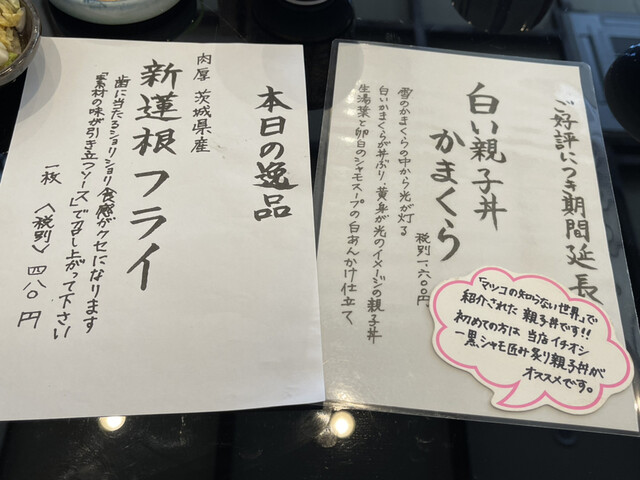 ご好評につき期間延長
白い親子丼
かまくら
税別一、六〇〇円
雪のかまくらの中から光が灯る
白いかまくらが丼ぶり、黄身が光のイメージの親子丼
生湯葉と卵白のシャモスープの白あんかけ仕立て
「マツコの知らない世界」で
紹介された 親子丼です!!
初めての方は 当店イチオシ
一黒シャモ匠み炙り親子丼が
オススメです。
本日の逸品
肉厚 茨城県産
新蓮根フライ
歯に当たるショリショリ食感がクセになります
「素材の味が引き立つソース」で召し上がって下さい
一枚 〈税別〉 四八〇円